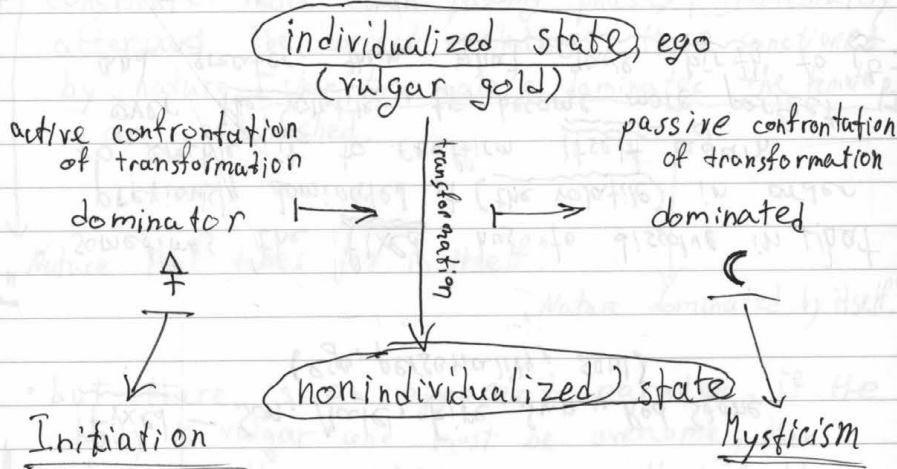 individualized state, ego
(vulgar gold)
active confrontation
of transformation
dominator
transformation
passive confrontation
of transformation
dominated
nonindividualized state
Initiation
Mysticism